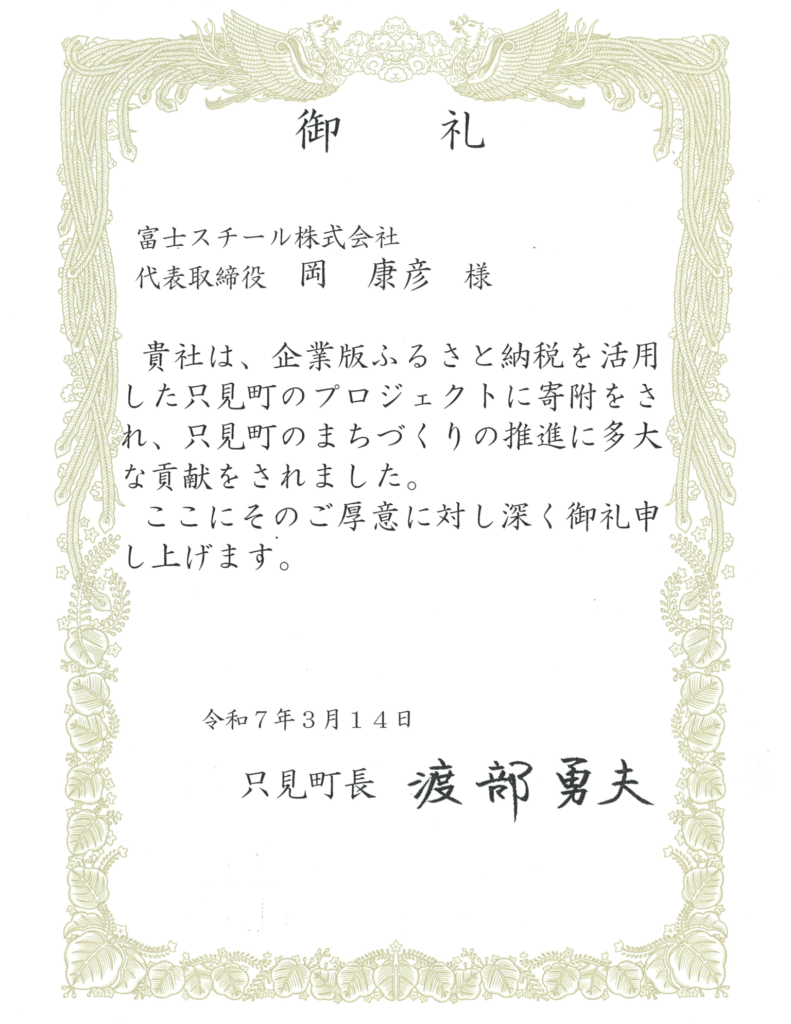 御　礼
富士スチール株式会社
代表取締役　岡　康彦　様
貴社は、企業版ふるさと納税を活用
した只見町のプロジェクトに寄附をさ
れ、只見町のまちづくりの推進に多大
な貢献をされました。
ここにそのご厚意に対し深く御礼申
し上げます。
令和７年３月１４日
只見町長　渡部勇夫